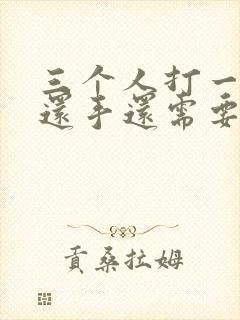 三个人打一
還手還需要
贡桑拉姆